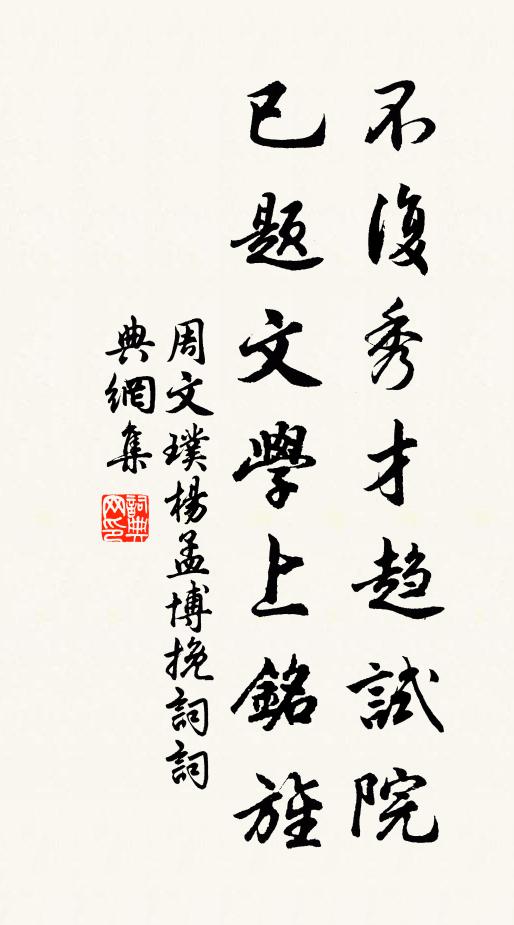 不復秀才趨試院
已題文學上銘旌
周文璞楊孟博挽詞詞
典網集
詞典网印